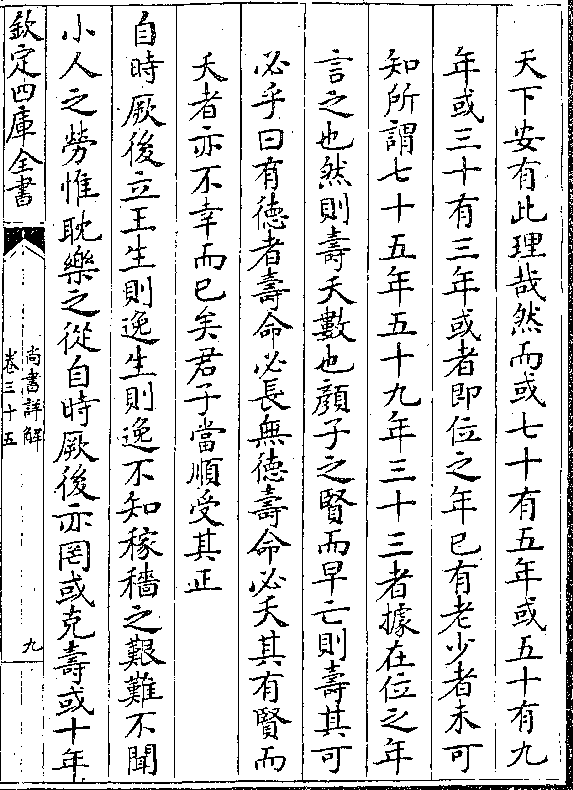 天下安有此理哉然而或七十有五年或五十有九
年或三十有三年或者即位之年已有老少者未可
知所謂七十五年五十九年三十三者據在位之年
言之也然則壽夭數也顔子之賢而早亡則壽其可
必乎曰有徳者壽命必長無徳壽命必夭其有賢而
夭者亦不幸而已矣君子當順受其正
自時厥後立王生則逸生則逸不知稼穡之艱難不聞
小人之勞惟耽樂之從自時厥後亦罔或克壽或十年
欽定四庫全書
尚書詳解
卷三十五
九